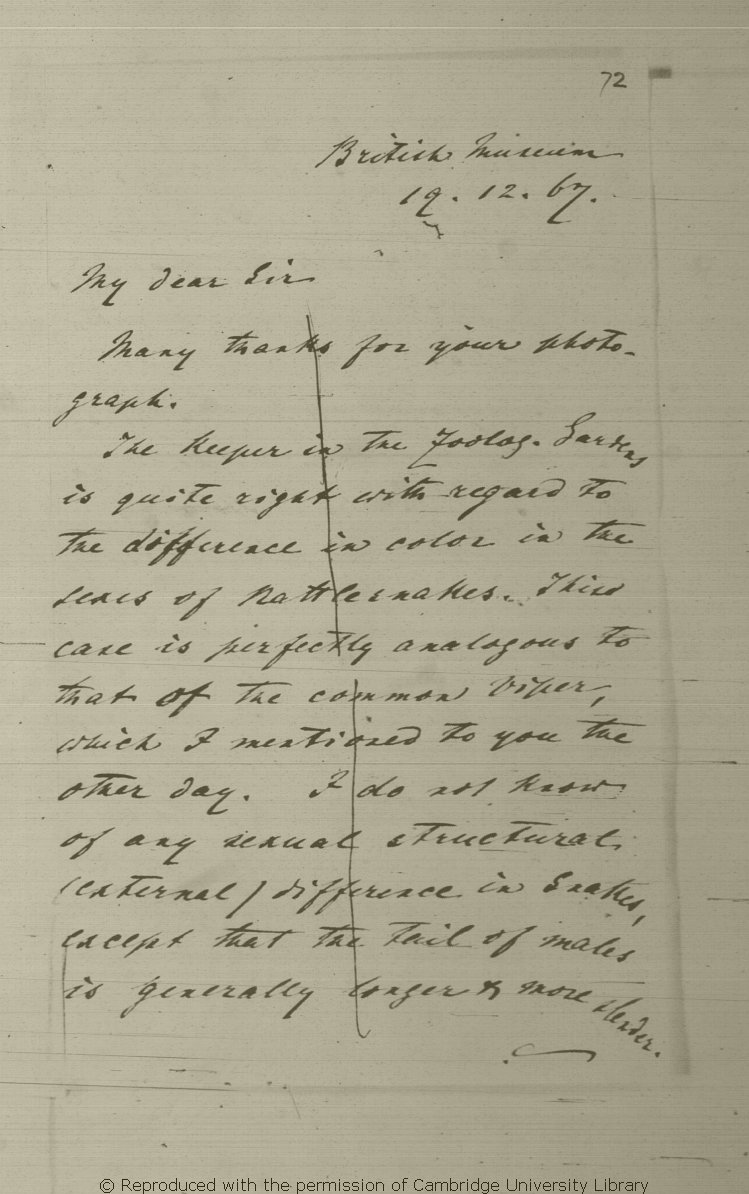 72
British Museum
19. 12. 67.
My dear Sir
Many thanks for your photo-
graph.
The Keeper in the Zoolog. Gardens
is quite right with regard to
the difference in color in the
sexes of Rattlesnakes. This
case is perfectly analogous to
that of the common Viper,
which I mentioned to you the
other day. I do not know
of any sexual structural
(external) difference in Snakes,
except that the tail of males
is generally longer & more slender.
© Reproduced with the permission of Cambridge University Library